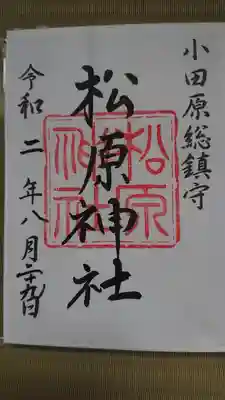 小田原総鎮守
松原神社
松原神社
令和二年八月二十九日